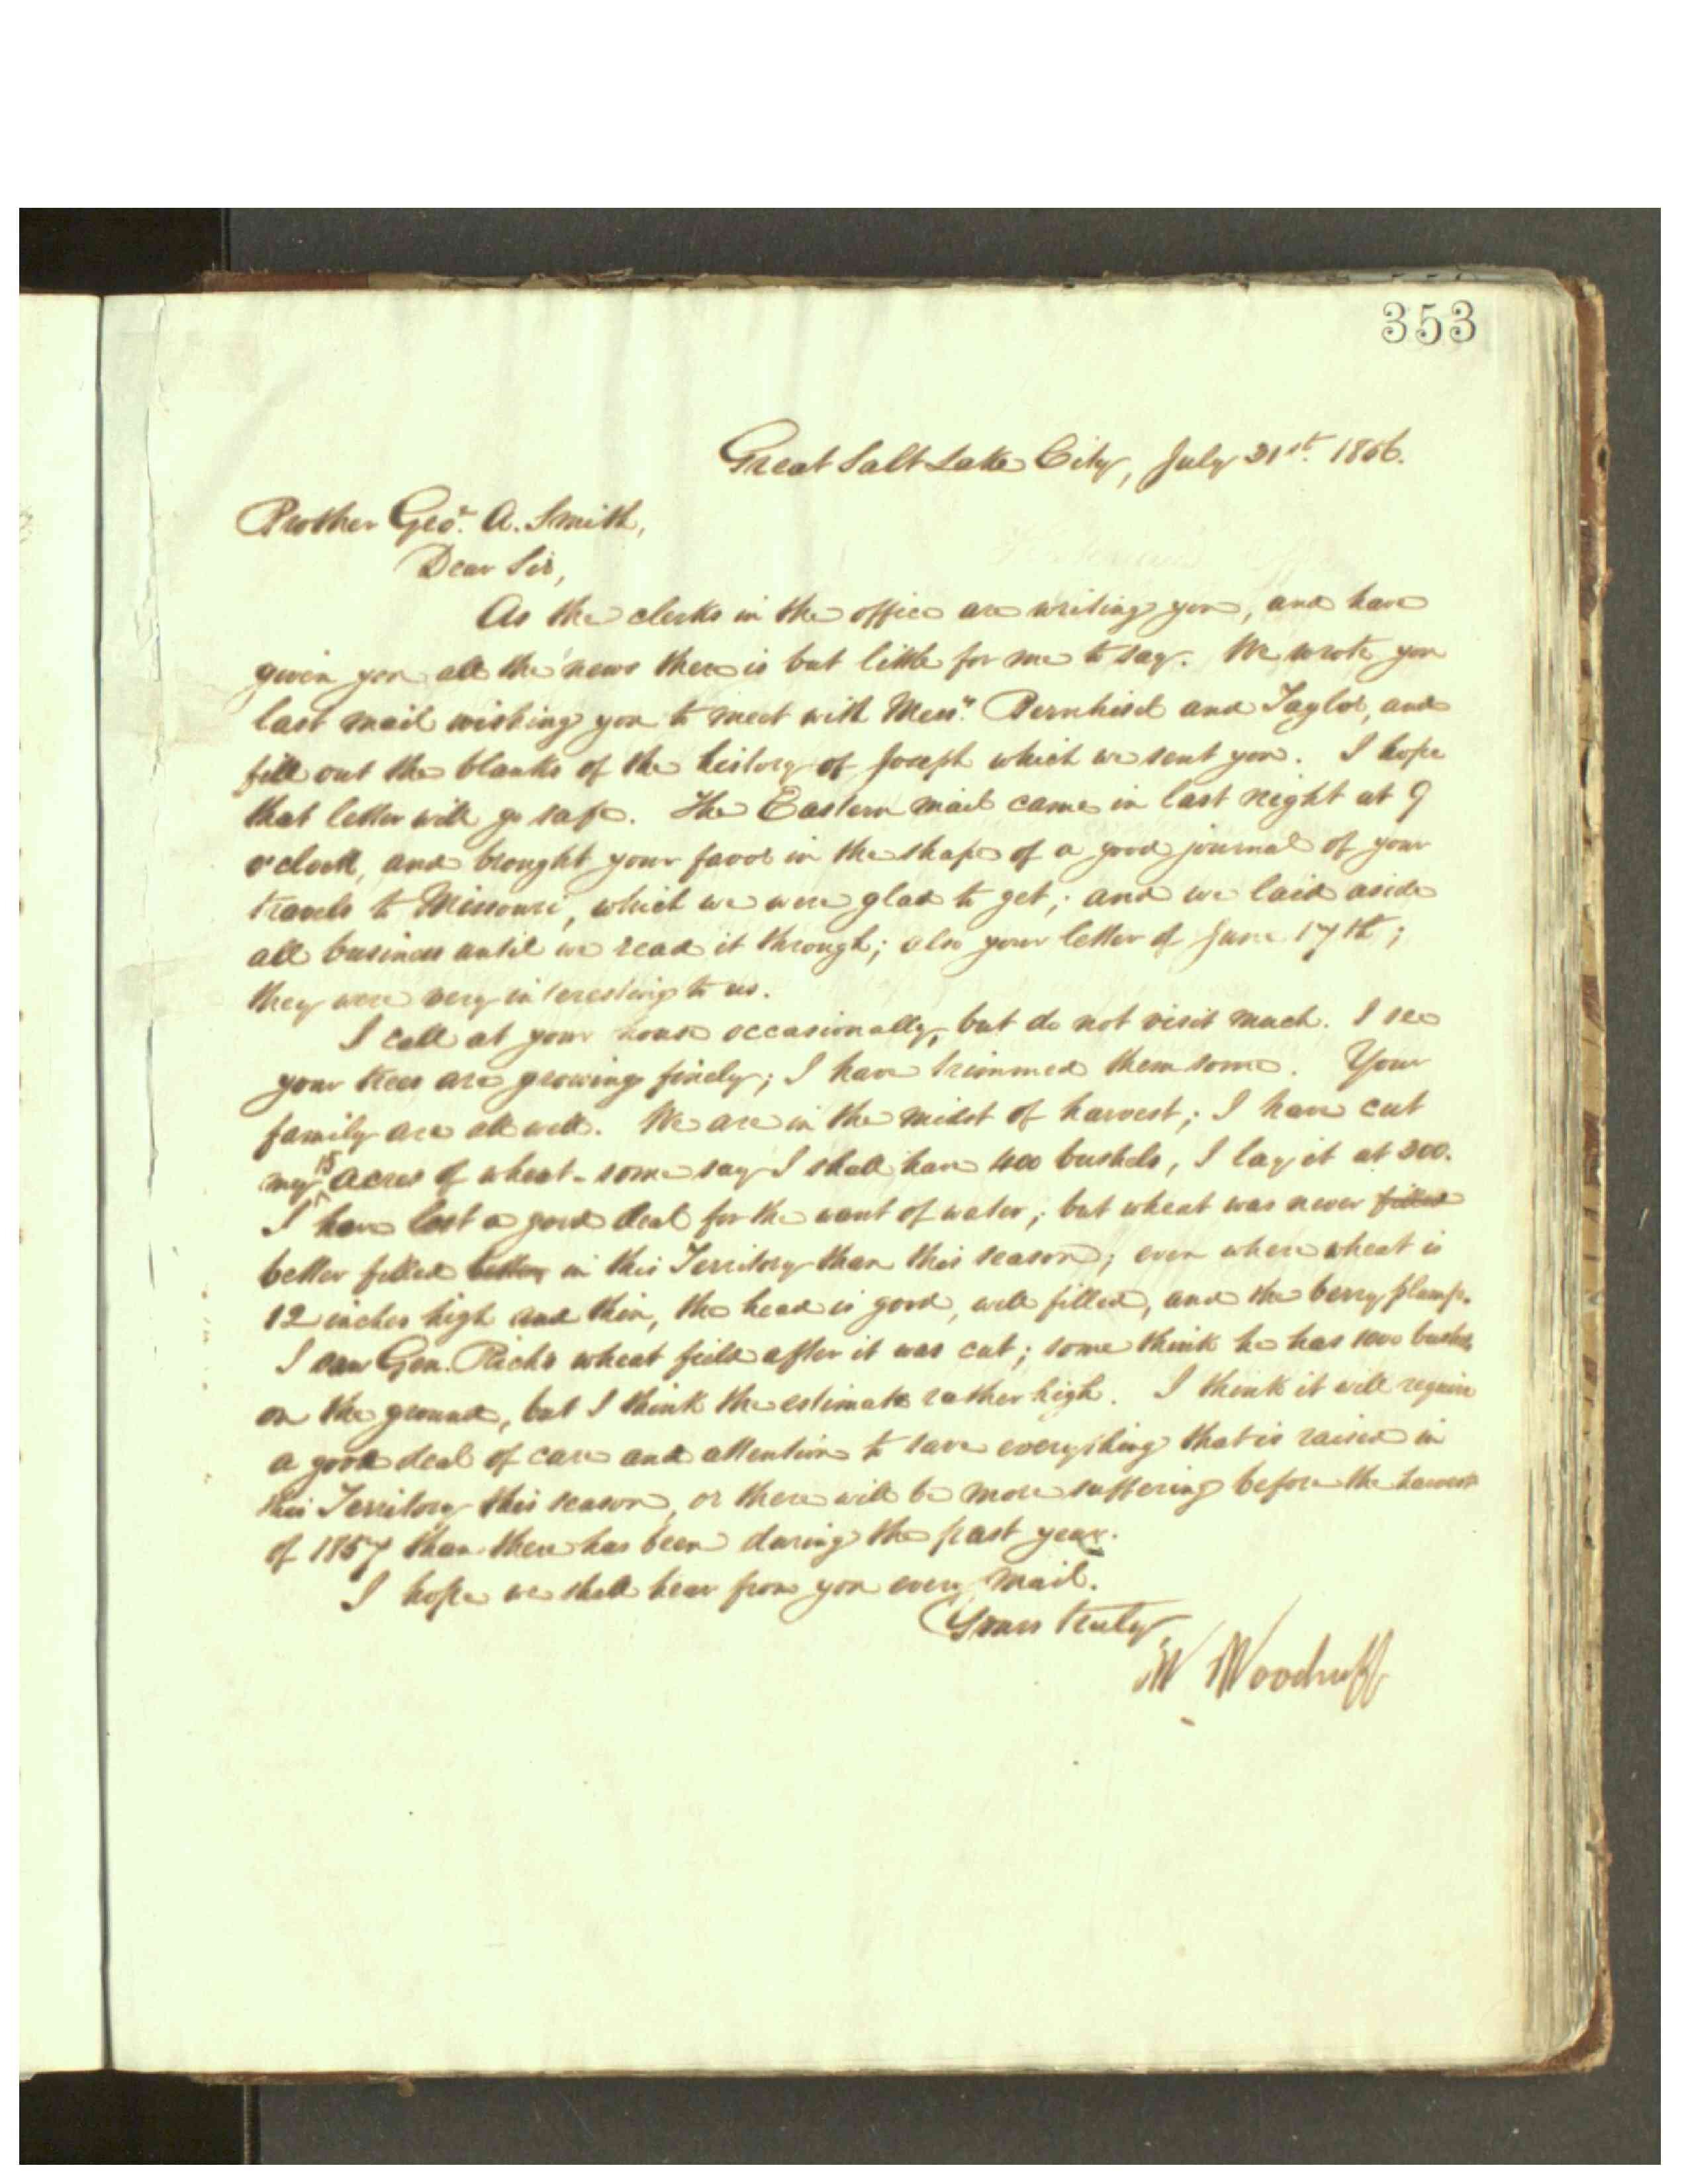 353
Great Salt Lake City, July 31st. 1856.
Brother Geo. A. Smith,
Dear Sir,
As the clerks in the office are writing you, and have
given you all the news there is but little for me to say. We wrote you
last mail wishing you to meet with Messrs. Bernhisel and Taylor, and
fill out the blanks of the history of Joseph which we sent you. I hope
that letter will go safe. The Eastern mail came in last night at 9
o'clock, and brought your favor in the shape of a good journal of your
travels to Missouri, which we were glad to get; and we laid aside
all business until we read it through; also your letter of June 17th;
they were very interesting to us.
I call at your house occasionally, but do not visit much. I see
your trees are growing finely; I have trimmed them some. Your
family are all well. We are in the midst of harvest; I have cut
my 15 acres of wheat - some say I shall have 400 bushels, I lay it at 300.
I have lost a good deal for the want of water; but wheat was never filled
better filled better in this Territory than this season; even where wheat is
12 inches high and thin, the head is good, well filled, and the berry plump.
I saw Gen. Rich's wheat field after it was cut; some think he has 1000 bushels
on the ground, but I think the estimate rather high. I think it will require
a good deal of care and attention to save everything that is raised in
this Territory this season, or there will be more suffering before the harvest
of 1857 than there has been during the past year.
I hope we shall hear from you every mail.
Yours truly
W Woodruff